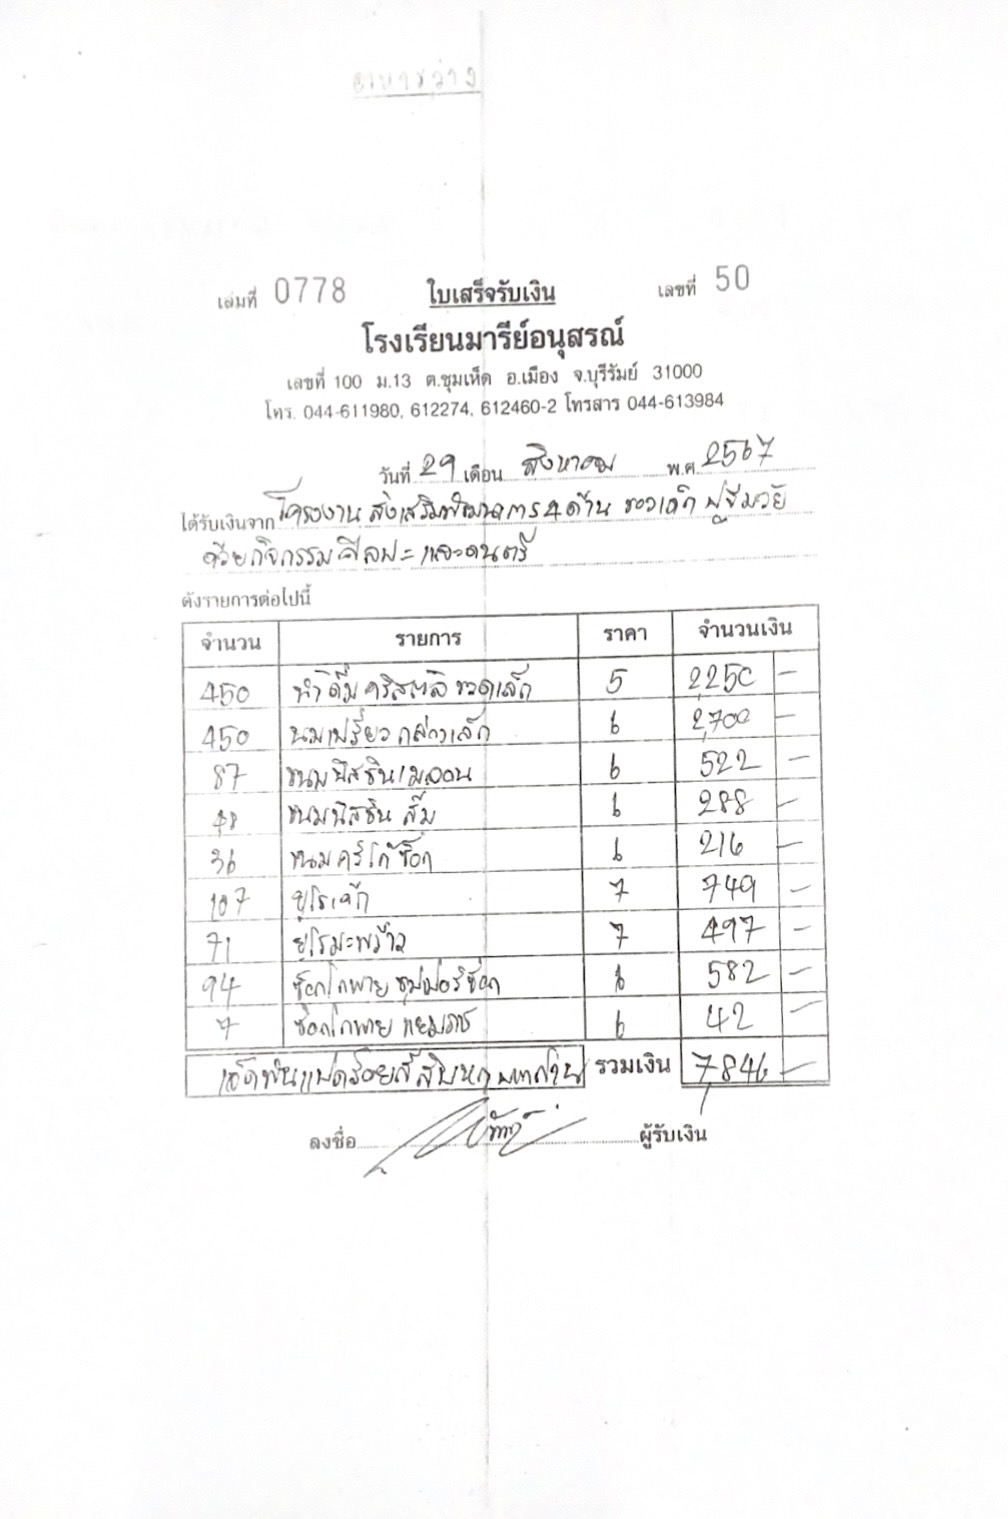 อาหารว่าง
เล่มที่ 0778 ใบเสร็จรับเงิน เลขที่ 50
โรงเรียนมารีย์อนุสรณ์
เลขที่ 100 ม.13 ต.ชุมเห็ด อ.เมือง จ.บุรีรัมย์ 31000
โทร. 044-611980, 612274, 612460-2 โทรสาร 044-613984
วันที่ 29 เดือน สิงหาคม พ.ศ. 2567
ได้รับเงินจาก โครงงานส่งเสริมพัฒนาการ 4 ด้าน ของเด็กปฐมวัย
ด้วยกิจกรรมศิลปะและดนตรี
ดังรายการต่อไปนี้
จำนวน รายการ ราคา จำนวนเงิน
450 น้ำดื่มคริสตัลขวดเล็ก 5 2,250 -
450 นมเปรี้ยวกล่องเล็ก 6 2,700 -
87 ขนมนิสชินเมลอน 6 522 -
48 ขนมนิสชิน ส้ม 6 288 -
36 ขนมครีโก้ช็อก 6 216 -
107 ยูโรเค้ก 7 749 -
71 ยูโรมะพร้าว 7 497 -
94 ช็อกโกพาย ซุปเปอร์ช็อก 6 582 -
7 ช็อกโกพาย 6 42 -
เจ็ดพันแปดร้อยสี่สิบหกบาทถ้วน รวมเงิน 7,846 -
ลงชื่อ ผู้รับเงิน